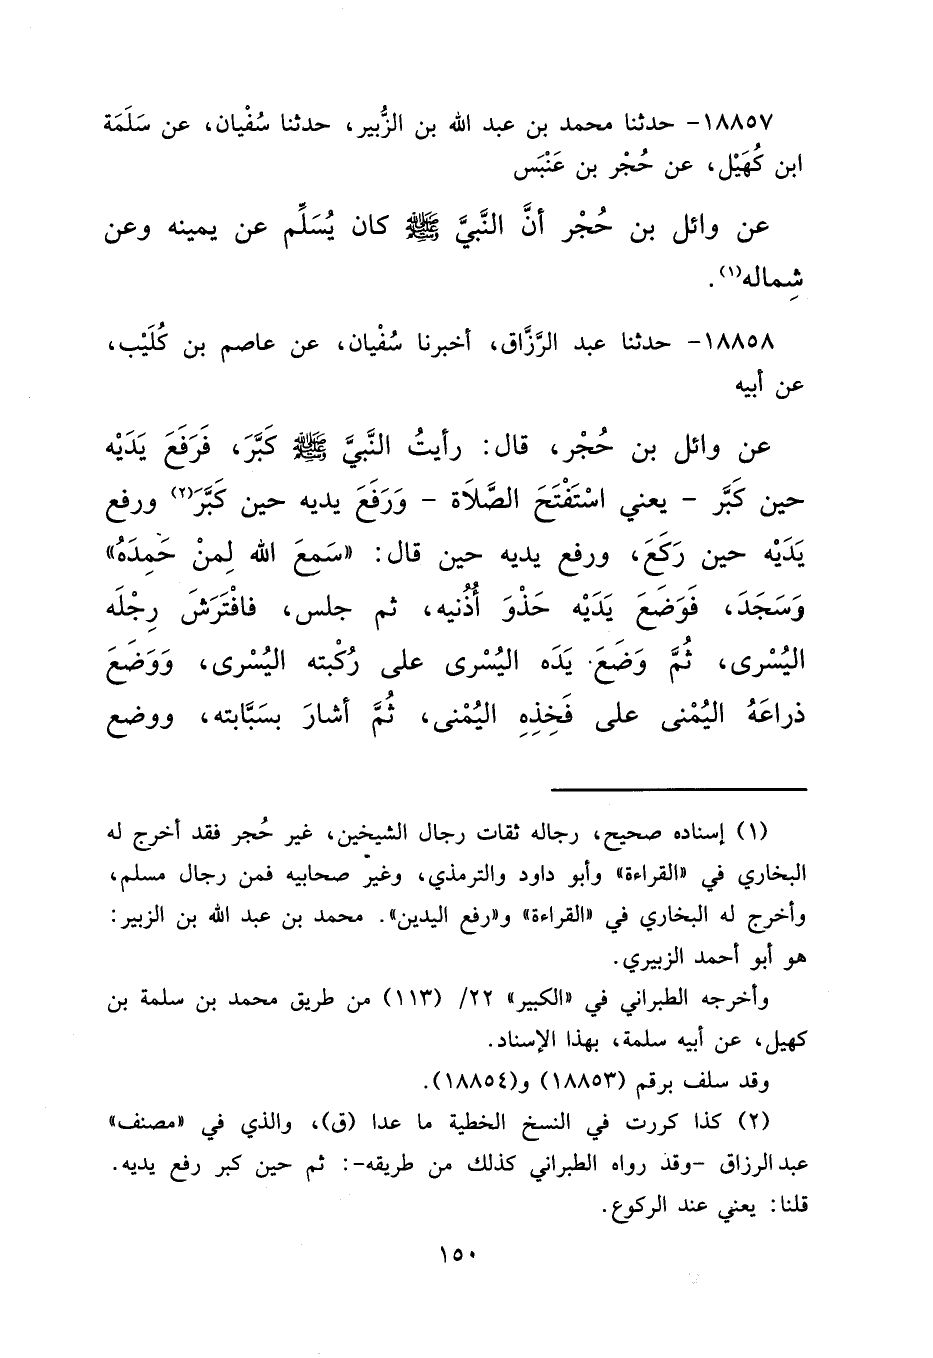 ١٨٨٥٧- حدثنا محمد بن عبد الله بن الزُّبير، حدثنا سُفْيان، عن سَلَمَة
ابن كُهَيْل، عن حُجْر بن عَنْبَس
عن وائل بن حُجْر أنَّ النَّبيَّ ﷺ كان يُسَلِّم عن يمينه وعن
شِماله(١).
١٨٨٥٨- حدثنا عبد الرَّزَّاق، أخبرنا سُفْيان، عن عاصم بن كُلَيْب،
عن أبيه
عن وائل بن حُجْر، قال: رأيتُ النَّبيَّ ﷺ كَبَّرَ، فَرَفَعَ يَدَيْه
حين كَبَّر - يعني اسْتَفْتَحَ الصَّلَاة - وَرَفَعَ يديه حين كَبَّرَ(٢) ورفع
يَدَيْه حين رَكَعَ، ورفع يديه حين قال: «سَمِعَ الله لِمنْ حَمِدَهُ»
وَسَجَدَ، فَوَضَعَ يَدَيْه حَذْوَ أُذُنيه، ثم جلس، فافْتَرَشَ رِجْلَه
اليُسْرى، ثُمَّ وَضَعَ يَدَه اليُسْرى على رُكْبته اليُسْرى، وَوَضَعَ
ذراعَهُ اليُمْنى على فَخِذِهِ اليُمْنى، ثُمَّ أشارَ بسَبَّابته، ووضع
(١) إسناده صحيح، رجاله ثقات رجال الشيخين، غير حُجر فقد أخرج له
البخاري في «القراءة» وأبو داود والترمذي، وغير صحابيه فمن رجال مسلم،
وأخرج له البخاري في «القراءة» و«رفع اليدين». محمد بن عبد الله بن الزبير:
هو أبو أحمد الزبيري.
وأخرجه الطبراني في «الكبير» ٢٢/ (١١٣) من طريق محمد بن سلمة بن
كهيل، عن أبيه سلمة، بهذا الإسناد.
وقد سلف برقم (١٨٨٥٣) و(١٨٨٥٤).
(٢) كذا كررت في النسخ الخطية ما عدا (ق)، والذي في «مصنف»
عبد الرزاق -وقد رواه الطبراني كذلك من طريقه-: ثم حين كبر رفع يديه.
قلنا: يعني عند الركوع.
١٥٠